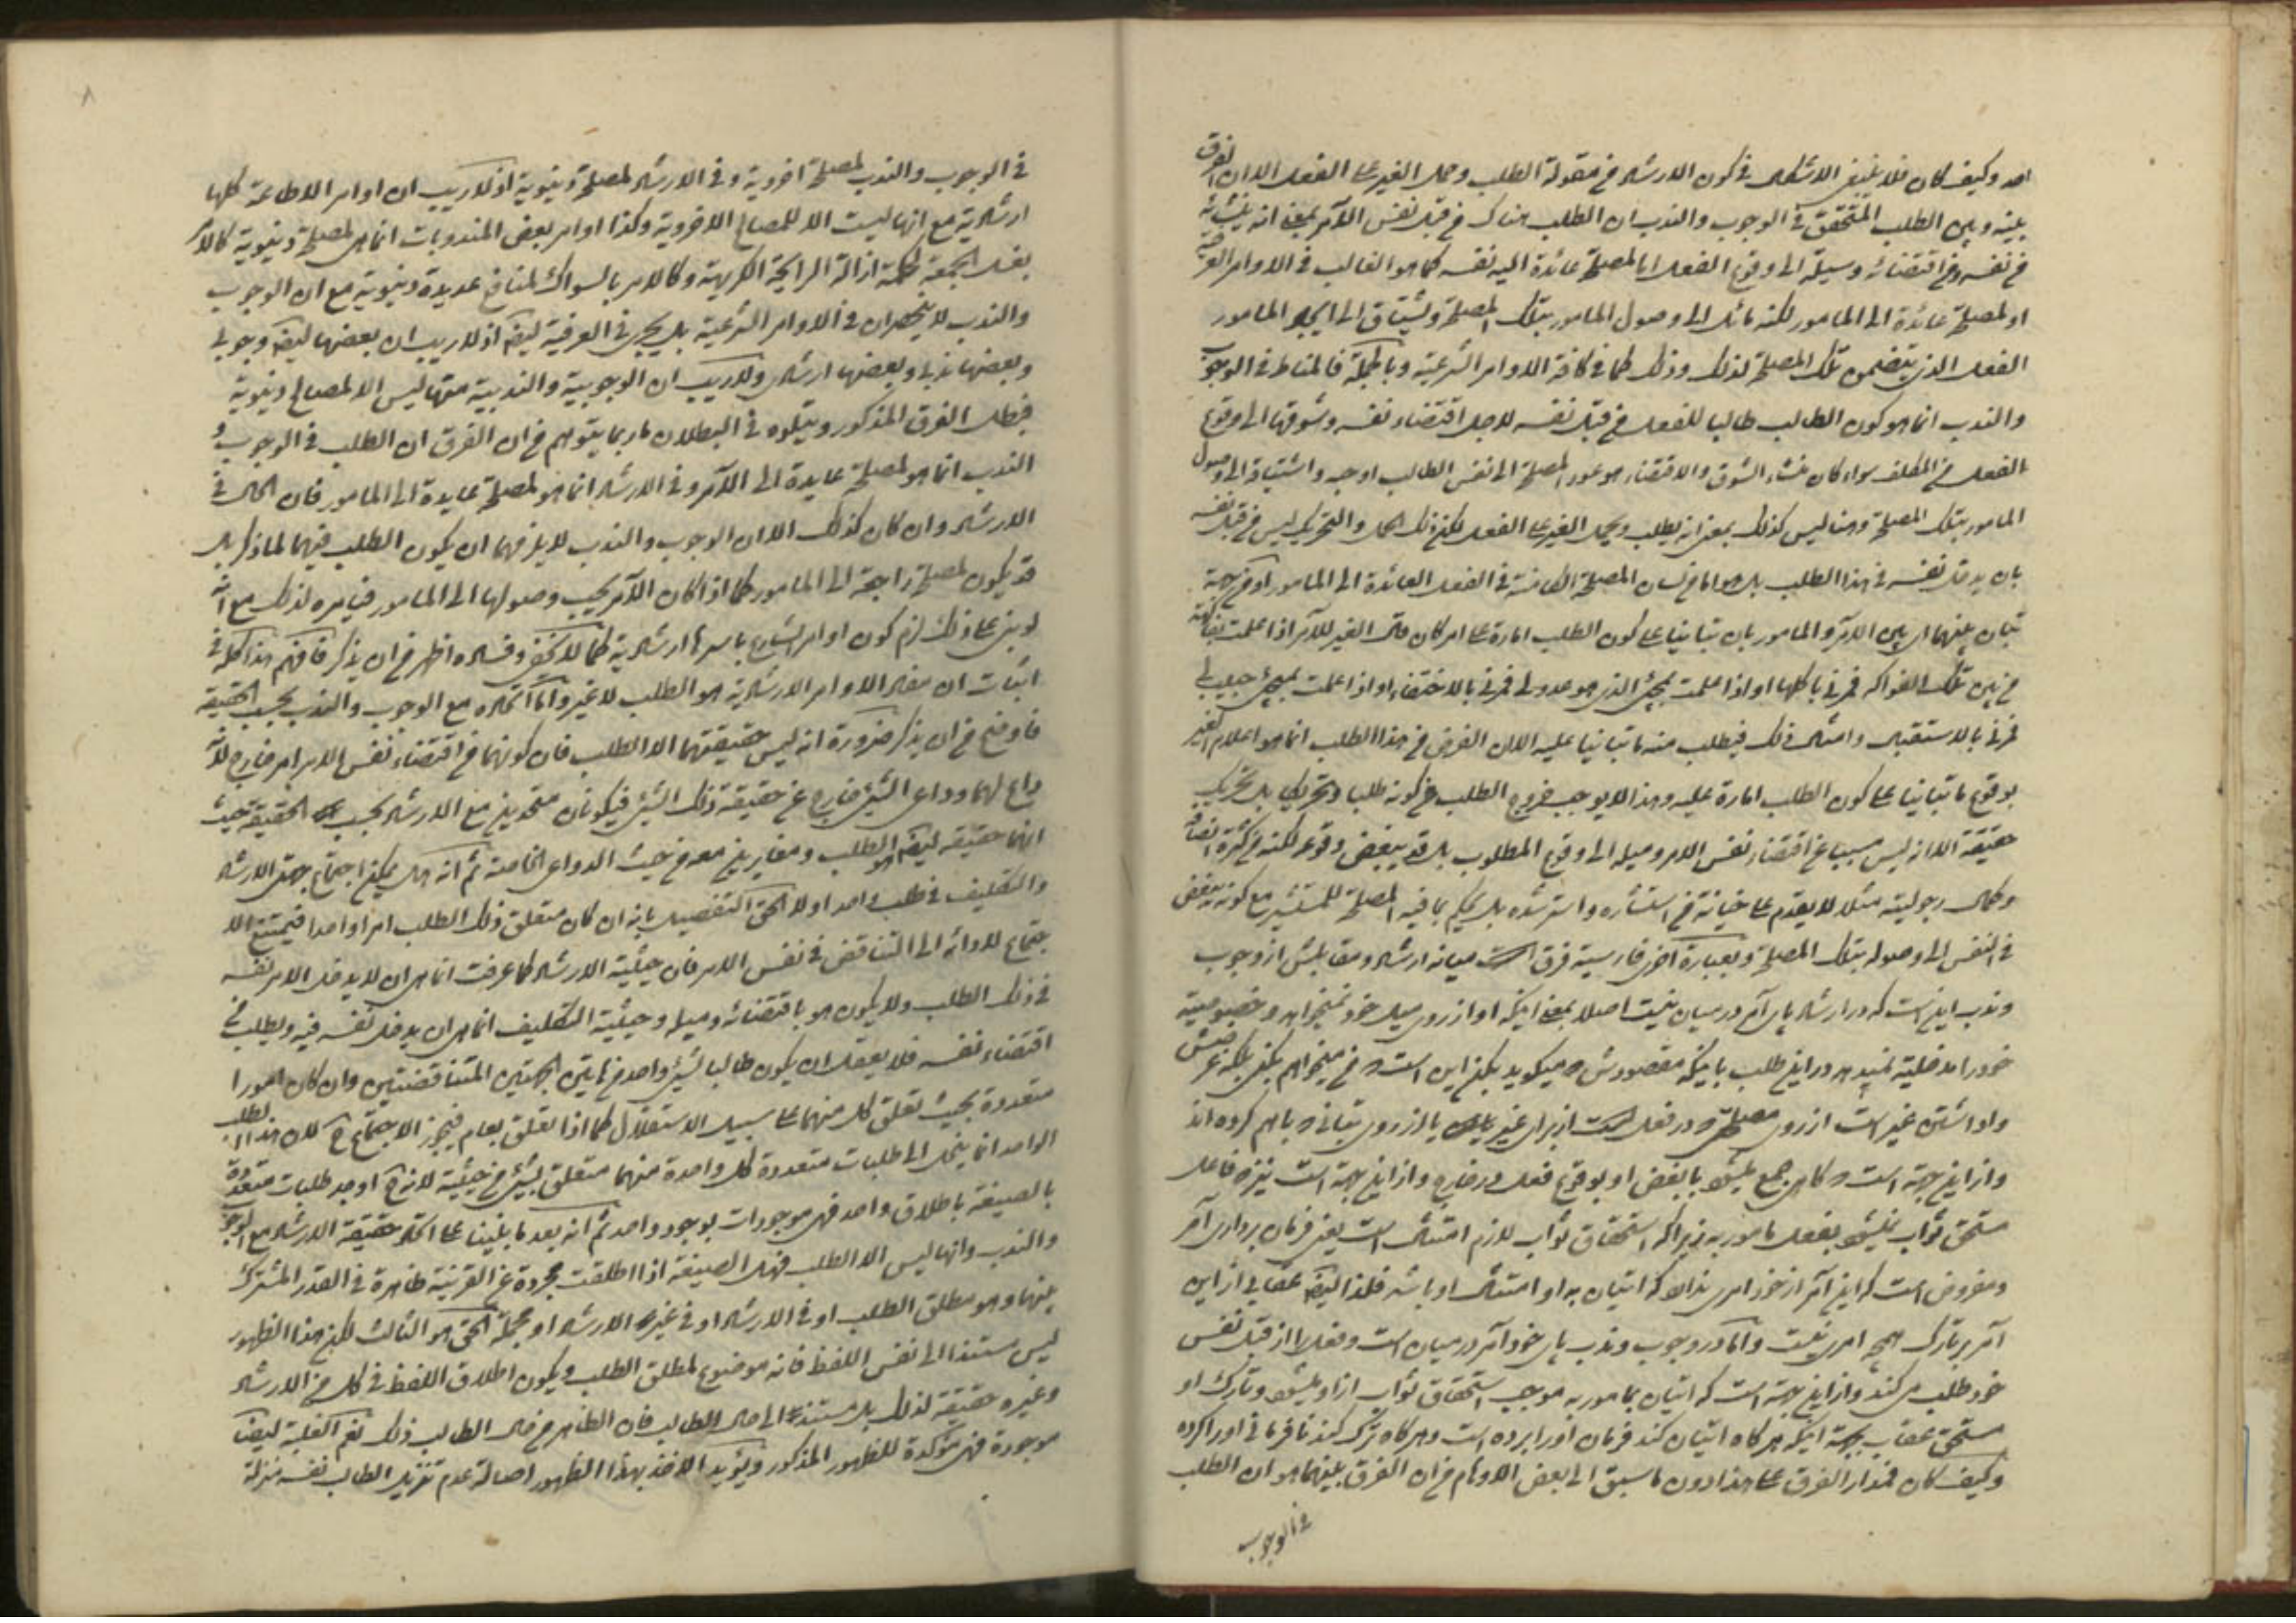 احد وكيف كان فلا ينبغي الاشكال في كون الارشاد من مقولة الطلب وحمل الغير على الفعل الا ان الفرق
بينه وبين الطلب المتحقق في الوجوب والندب ان الطلب هناك من قبل نفس الآمر بمعنى انه ينشأ
من نفسه ومن اقتضائه وسيلة الى وقوع الفعل اما لمصلحة عائدة اليه نفسه كما هو الغالب في الاوامر العرفية
او لمصلحة عائدة الى المامور لكنه مائل الى وصول المامور بتلك المصلحة ويشتاق الى ايجاد المامور
الفعل الذي يتضمن تلك المصلحة لذلك وذلك كما في كافة الاوامر الشرعية وبالجملة فالمناط في الوجوب
والندب انما هو كون الطالب طالبا للفعل من قبل نفسه لاجل اقتضاء نفسه وشوقها الى وقوع
الفعل من المكلف سواء كان منشاء الشوق والاقتضاء هو عود المصلحة الى نفس الطالب او حبه واشتياقه الى وصول
المامور بتلك المصلحة وهنا ليس كذلك بمعنى انه يطلب ويحمل الغير على الفعل لكن ذلك الحمل والتحريك ليس من قبل نفسه
بان يدخل نفسه في هذا الطلب بل هو اما من لسان المصلحة الكامنة في الفعل العائدة الى المامور او من جهة
تبان بينهما اي بين الآمر والمامور بان تبانيا على كون الطلب امارة على امر كان على الغير للآمر اذا علمت
من بين تلك الفواكه فمرني باكلها او اذا علمت بمجيء الذي هو عدو لي فمرني بالاختفاء او اذا علمت بمجيء حبيب لي
فمرني بالاستقبال وامثال ذلك فيطلب منه ما تبانيا عليه الا ان الغرض من هذا الطلب انما هو اعلام الغير
بوقوع ما تبانيا على كون الطلب امارة عليه وهذا لا يوجب خروج الطلب عن كونه طلبا وتحريكا بل تحريك
حقيقة الا انه ليس مسببا عن اقتضاء نفس الامر وميله الى وقوع المطلوب بل قد يبغض وقوعه لكنه من كثرة انصافه
وكمال رجوليته مثلا لا يقدم على خيانة من استشاره واسترشده بل يحكم بما فيه المصلحة للمستشير مع كونه يبغض
في النفس الى وصوله بتلك المصلحة وبعبارة اخرى فارسية فرق است ميانه ارشاد ومقابلش از وجوب
وندب اينست كه در ارشاد پاى آمر در ميان نيست اصلا بمعنى اينكه او از روى ميل خود نميخواهد وخصوصيت
خود را مدخليت نميدهد در اين طلب باينكه مقصودش كه ميگويد بكن اين است كه من ميخواهم بكنى بلكه غرضش
واداشتن غير است از روى مصلحتى كه در فعل است از براى غير يا از روى تبانى كه باهم كرده اند
واز اين جهت است كه گاهى جمع ميشود با بغض او بوقوع فعل در خارج واز اين جهت است نيز كه فاعل
مستحق ثواب نميشود بفعل مامور به زيرا كه استحقاق ثواب لازم امتثال است يعنى فرمان بردارى آمر
ومفروض است كه اين آمر از خود امرى ندارد كه اتيان به او امتثال او باشد فلذا ايضا عقابى از اين
آمر بتارك هيچ امرى نيست واما در وجوب وندب پاى خود آمر در ميان است وفعل را از قبل نفس
خود طلب مى كند واز اين جهت است كه اتيان بمامور به موجب استحقاق ثواب از او ميشود وتارك او
مستحق عقاب بجهت اينكه هرگاه اتيان كند فرمان او را برده است وهرگاه ترك كند نافرمانى او را كرده
وكيف كان فمدار الفرق على هذا دون ما سبق الى بعض الاوهام من ان الفرق بينهما هو ان الطلب
في الوجوب
٨
في الوجوب والندب لمصلحة اخروية وفي الارشاد لمصلحة دنيوية اذ لا ريب ان اوامر الاطاعة كلها
ارشادية مع انها ليست الا للمصالح الاخروية وكذا اوامر بعض المندوبات انما هى لمصلحة دنيوية كالامر
بغسل الجمعة لحكمة ازالة الرايحة الكريهة وكالامر بالسواك لمنافع عديدة دنيوية مع ان الوجوب
والندب لا ينحصران في الاوامر الشرعية بل يجرى في العرفية ايضا اذ لا ريب ان بعضها ايضا وجوبي
وبعضها ندبي وبعضها ارشادى ولا ريب ان الوجوبية والندبية منها ليس الا لمصالح دنيوية
فبطل الفرق المذكور ويتلوه في البطلان ما ربما يتوهم من ان الفرق ان الطلب في الوجوب و
الندب انما هو لمصلحة عايدة الى الآمر وفي الارشاد انما هو لمصلحة عايدة الى المامور فان الحال في
الارشاد وان كان كذلك الا ان الوجوب والندب لا يلزمهما ان يكون الطلب فيهما لما ذكر بل
قد يكون لمصلحة راجعة الى المامور كما اذا كان الآمر يحب وصولها الى المامور فيامره لذلك مع انه
لو بنى على ذلك لزم كون اوامر الشارع باسرها ارشادية كما لا يخفى وفساده اظهر من ان يذكر فافهم هذا كله في
اثبات ان مفاد الاوامر الارشادية هو الطلب لا غير واما اتحاده مع الوجوب والندب بحسب الحقيقة
فاوضح من ان يذكر ضرورة انه ليس حقيقتهما الا الطلب فان كونهما من اقتضاء نفس الامر امر خارج لانه
داع لهما وداعى الشيء خارج عن حقيقة ذلك الشيء فيكونان متحدين مع الارشاد بحسب الحقيقة حيث
انهما حقيقة ايضا هو الطلب ومغايرين معه من حيث الدواعى الخاصة ثم انه هل يمكن اجتماع جهتى الارشاد
والتكليف في طلب واحد او لا الحق التفصيل بانه ان كان متعلق ذلك الطلب امرا واحدا فيمتنع الا
جتماع لادائه الى التناقض في نفس الامر فان حيثية الارشاد كما عرفت انما هى ان لا يدخل الامر نفسه
في ذلك الطلب ولا يكون هو باقتضائه وميله وحيثية التكليف انما هى ان يدخل نفسه فيه ويطلب من
اقتضاء نفسه فلا يعقل ان يكون طالبا لشيء واحد من هاتين الجهتين المتناقضتين وان كان امورا
متعددة بحيث تعلق كل منهما على سبيل الاستقلال كما اذا تعلق بعام فيجوز الاجتماع ح لان هذا الطلب
الواحد انما ينحل الى طلبات متعددة كل واحدة منهما متعلق بشيء من حيثية لانه ح اوجد طلبات متعددة
بالصيغة باطلاق واحد فهى موجودات بوجود واحد ثم انه بعد ما بنينا على اتحاد حقيقة الارشاد مع الوجوب
والندب وانها ليس الا الطلب فهل الصيغة اذا اطلقت مجردة عن القرينة ظاهرة في القدر المشترك
بينهما وهو مطلق الطلب او في الارشاد او في غير الارشاد او مجملة الحق هو الثالث لكن هذا الظهور
ليس مستندا الى نفس اللفظ فانه موضوع لمطلق الطلب ويكون اطلاق اللفظ في كل من الارشاد
وغيره حقيقة لذلك بل مستند الى حال الطالب فان الظاهر من حال الطالب ذلك نعم الغلبة ايضا
موجودة فهى مؤكدة للظهور المذكور ويؤيد الاخذ بهذا الظهور اصالة عدم تنزيل الطالب نفسه منزلة